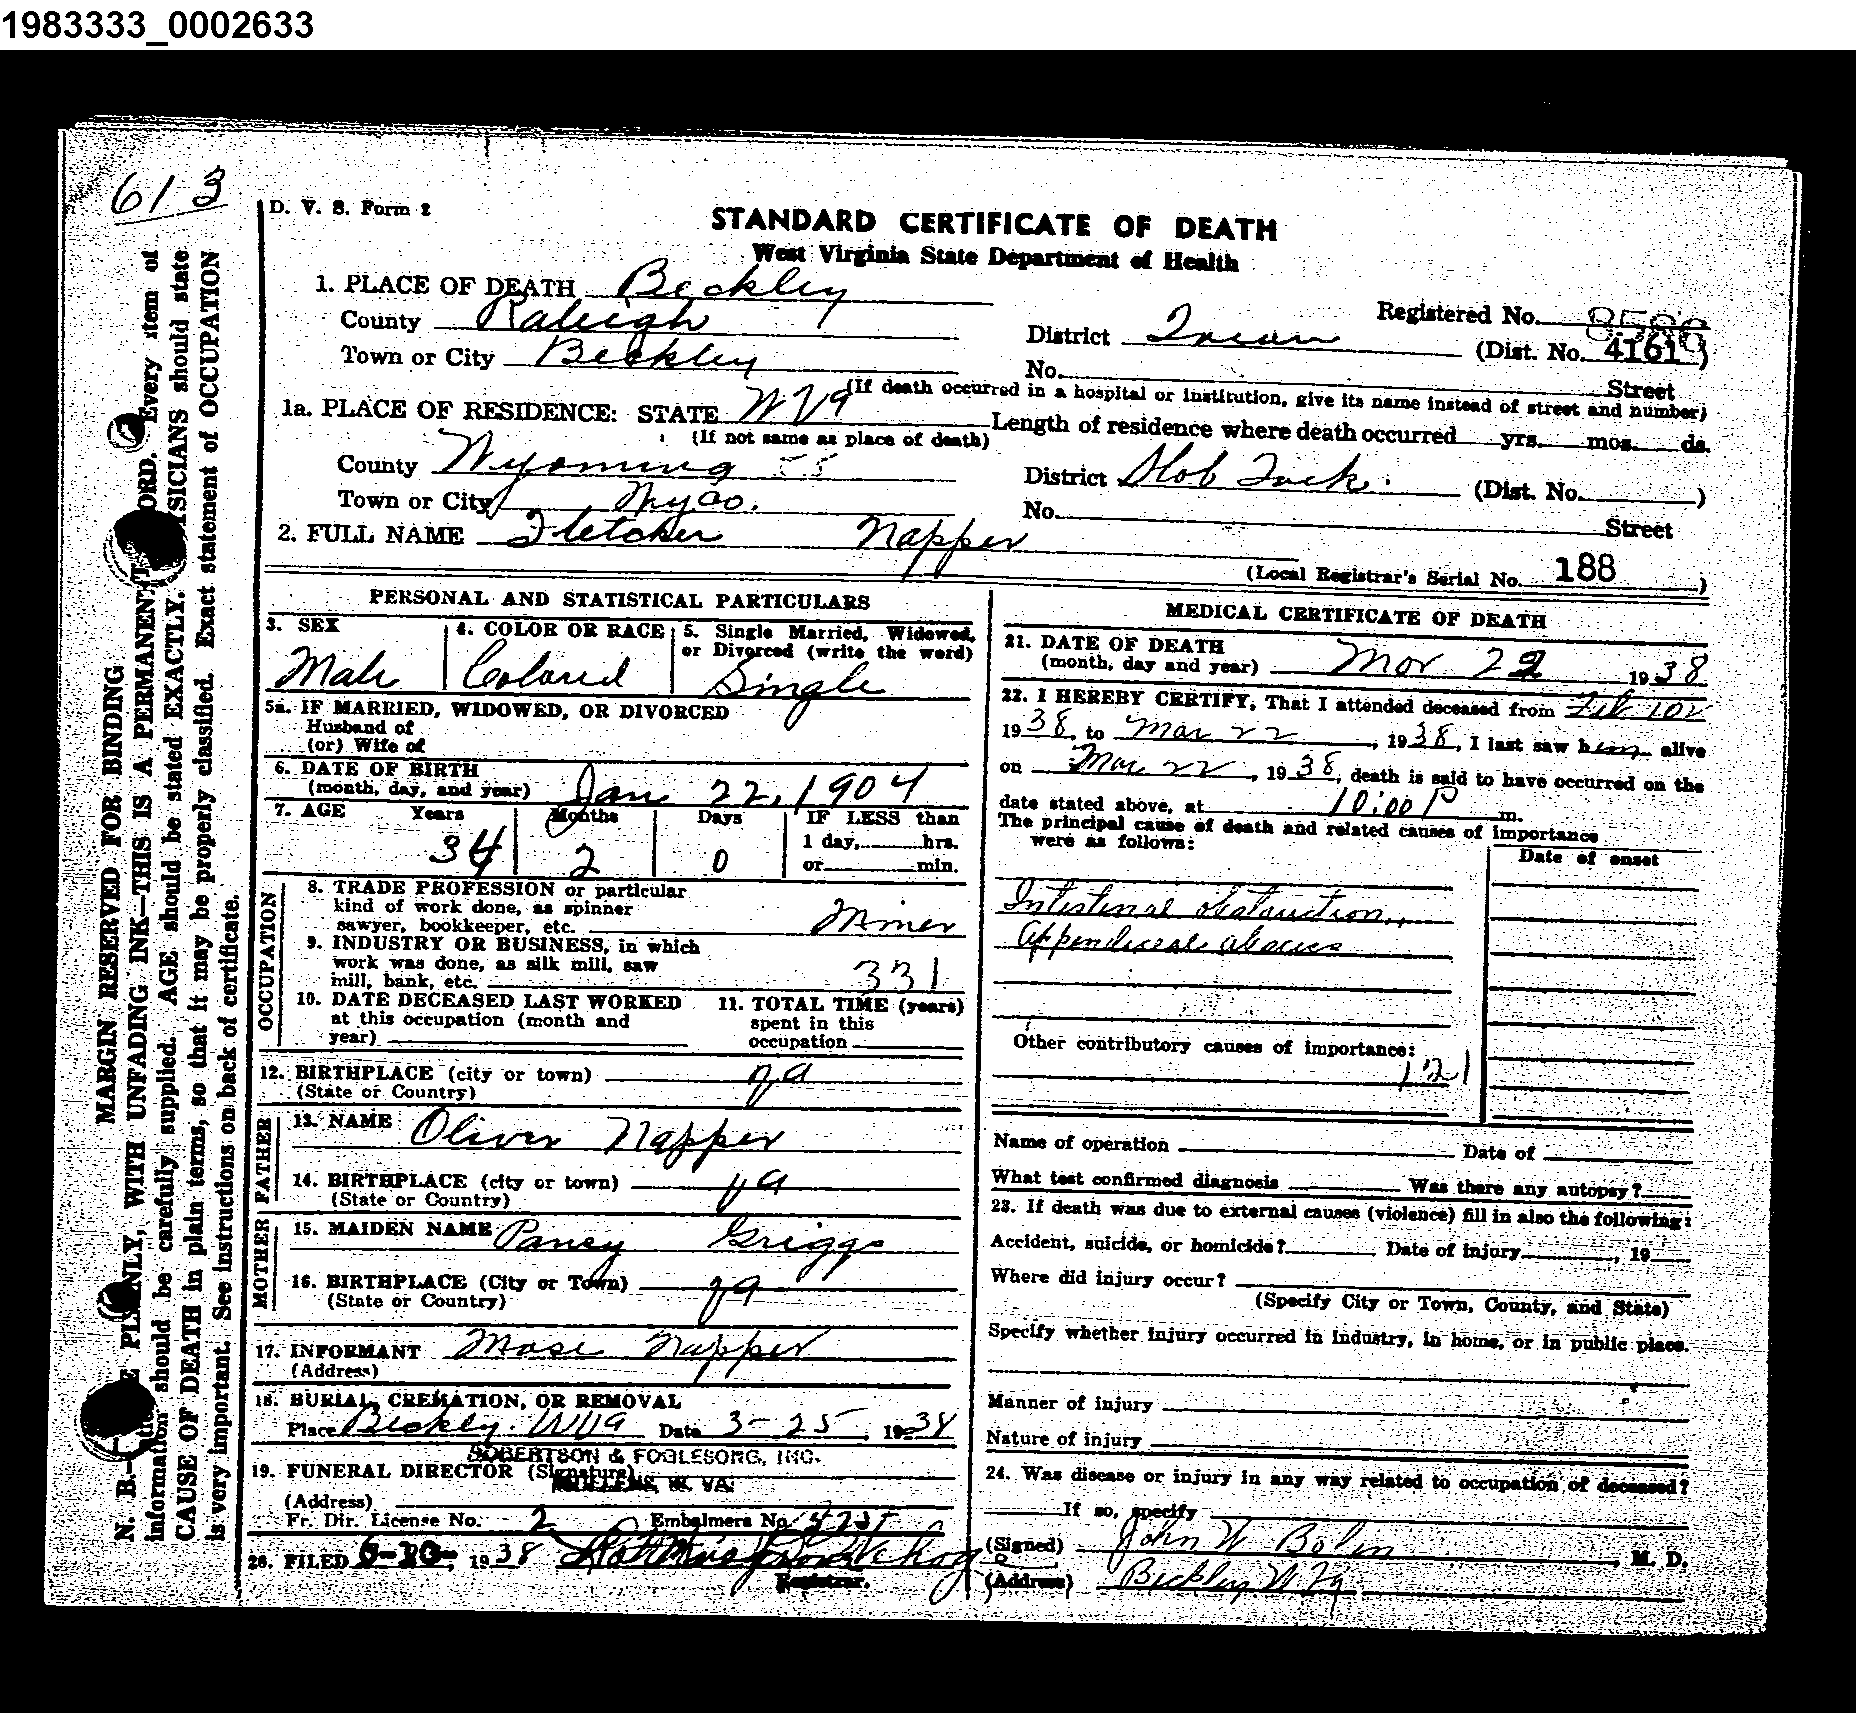 1983333_0002633
613
D. V. S. Form 2
STANDARD CERTIFICATE OF DEATH
West Virginia State Department of Health
1. PLACE OF DEATH Beckley
Registered No.
County Raleigh
District
(Dist. No. 4161)
Town or City Beckley
No. Street
(If death occurred in a hospital or institution, give its name instead of street and number)
1a. PLACE OF RESIDENCE: STATE W Va
(If not same as place of death)
Length of residence where death occurred yrs. mos. ds.
County Wyoming 55
District Slab Fork
(Dist. No. )
Town or City Wyco.
No. Street
2. FULL NAME Fletcher Napper
(Local Registrar's Serial No. 188 )
PERSONAL AND STATISTICAL PARTICULARS
3. SEX
Male
4. COLOR OR RACE
Colored
5. Single Married, Widowed, or Divorced (write the word)
Single
5a. IF MARRIED, WIDOWED, OR DIVORCED
Husband of
(or) Wife of
6. DATE OF BIRTH
(month, day, and year) Jan 22, 1904
7. AGE Years Months Days IF LESS than
34 2 0 1 day, hrs.
or min.
OCCUPATION
8. TRADE PROFESSION or particular
kind of work done, as spinner
sawyer, bookkeeper, etc. Miner
9. INDUSTRY OR BUSINESS, in which
work was done, as silk mill, saw
mill, bank, etc. 331
10. DATE DECEASED LAST WORKED
at this occupation (month and
year)
11. TOTAL TIME (years)
spent in this
occupation
12. BIRTHPLACE (city or town)
(State or Country)
FATHER
13. NAME Oliver Napper
14. BIRTHPLACE (city or town)
(State or Country)
MOTHER
15. MAIDEN NAME Pancy Griggs
16. BIRTHPLACE (City or Town)
(State or Country)
17. INFORMANT Mose Napper
(Address)
18. BURIAL, CREMATION, OR REMOVAL
Place Beckley. W Va Date 3-25 1938
ROBERTSON & FOGLESONG, INC.
19. FUNERAL DIRECTOR (Signature)
(Address)
Fr. Dir. License No. 2 Embalmers No.
20. FILED 1938
Registrar.
MEDICAL CERTIFICATE OF DEATH
21. DATE OF DEATH
(month, day and year) Mar 22 1938
22. I HEREBY CERTIFY, That I attended deceased from Feb
1938, to Mar 22, 1938, I last saw him alive
on Mar 22, 1938, death is said to have occurred on the
date stated above, at 10:00 P m.
The principal cause of death and related causes of importance
were as follows:
Date of onset
Intestinal obstruction,
Appendiceal abscess
Other contributory causes of importance:
121
Name of operation Date of
What test confirmed diagnosis Was there any autopsy?
23. If death was due to external causes (violence) fill in also the following:
Accident, suicide, or homicide? Date of injury , 19
Where did injury occur?
(Specify City or Town, County, and State)
Specify whether injury occurred in industry, in home, or in public place.
Manner of injury
Nature of injury
24. Was disease or injury in any way related to occupation of deceased?
If so, specify
(Signed) John W Bolen, M. D.
(Address) Beckley. W Va
MARGIN RESERVED FOR BINDING
N. B. PLAINLY, WITH UNFADING INK—THIS IS A PERMANENT RECORD. Every item of
information should be carefully supplied. AGE should be stated EXACTLY. PHYSICIANS should state
CAUSE OF DEATH in plain terms, so that it may be properly classified. Exact statement of OCCUPATION
is very important. See instructions on back of certificate.